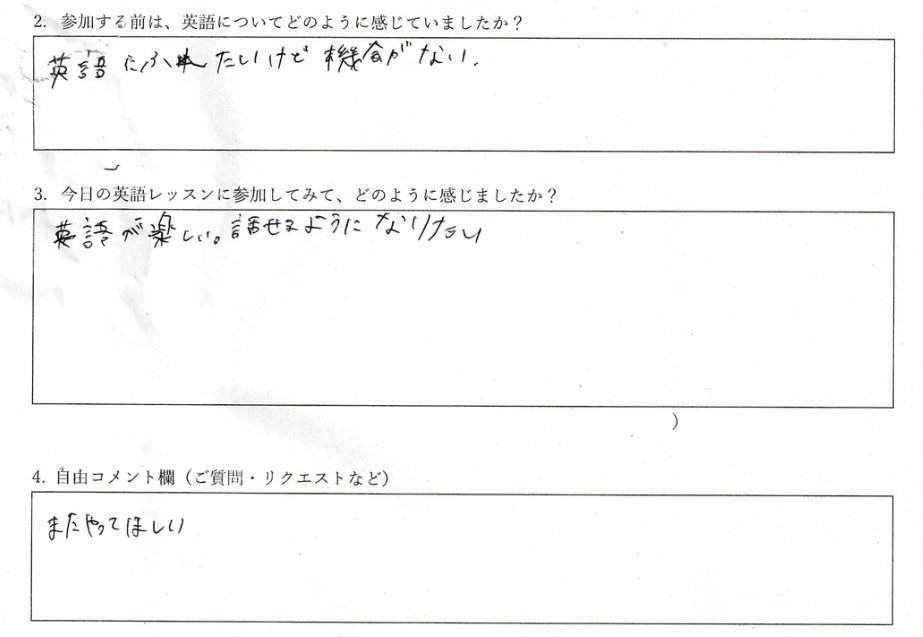 2. 参加する前は、英語についてどのように感じていましたか？
英語にふれたいけど機会がない.
3. 今日の英語レッスンに参加してみて、どのように感じましたか？
英語が楽しい。話せるようになりたい
)
4. 自由コメント欄（ご質問・リクエストなど）
またやってほしい